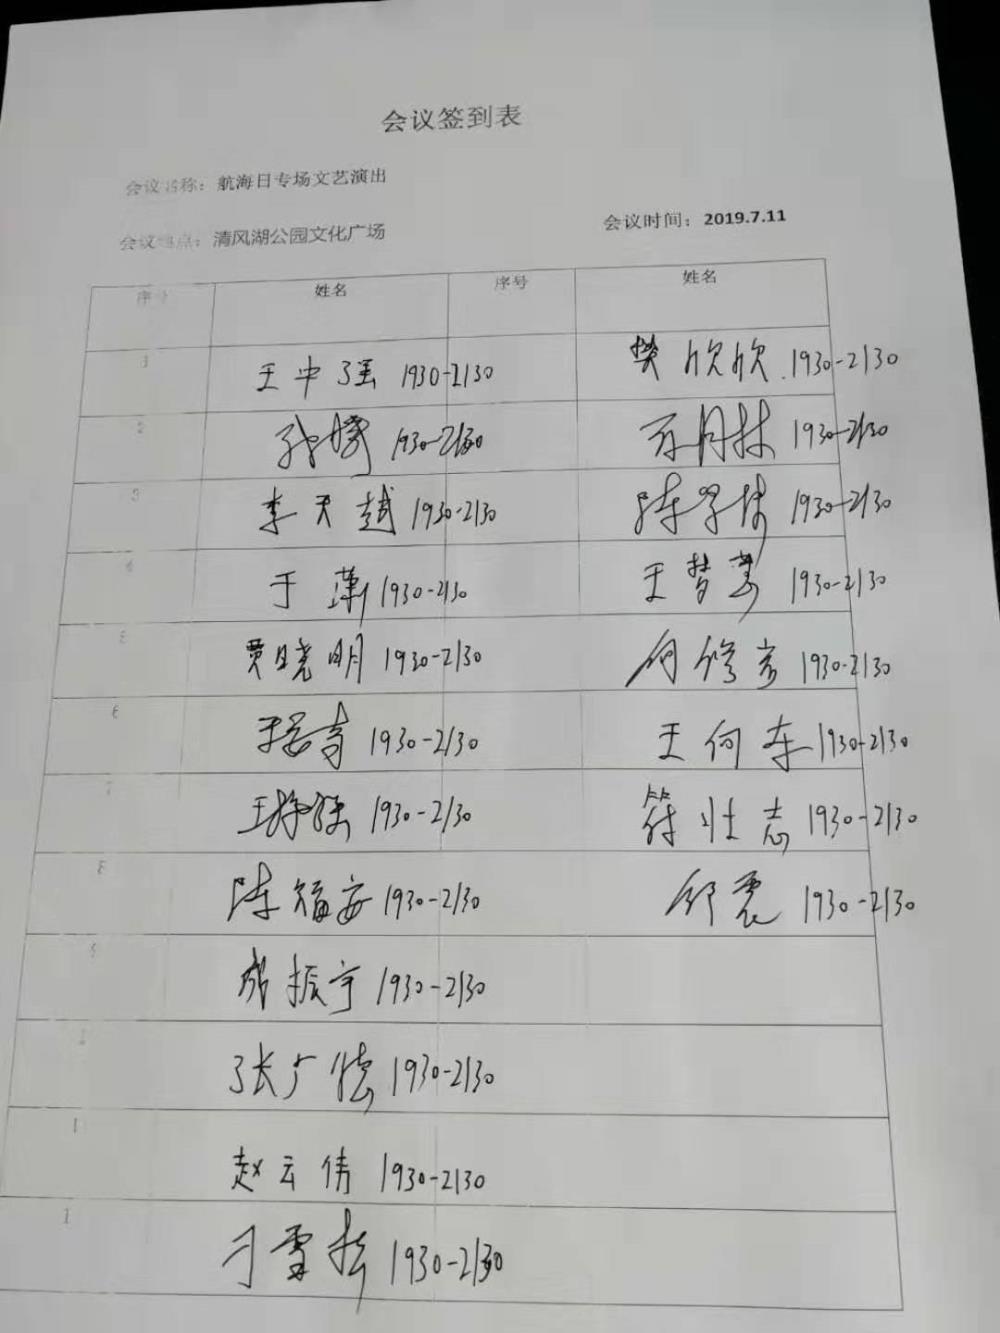 会议签到表
会议名称：航海日专场文艺演出
会议地点：清风湖公园文化广场
会议时间：2019.7.11
序号 姓名 序号 姓名
1 王中强 1930-2130 樊欣欣 1930-2130
2 1930-2130 1930-2130
3 李天越 1930-2130 陈 1930-2130
4 于萍 1930-2130 王梦 1930-2130
5 贾晓明 1930-2130 何修 1930-2130
6 1930-2130 王何东 1930-2130
7 王 1930-2130 符壮志 1930-2130
8 陈福安 1930-2130 邹震 1930-2130
9 成振宇 1930-2130
张广德 1930-2130
1 赵云伟 1930-2130
1 刁雪 1930-2130